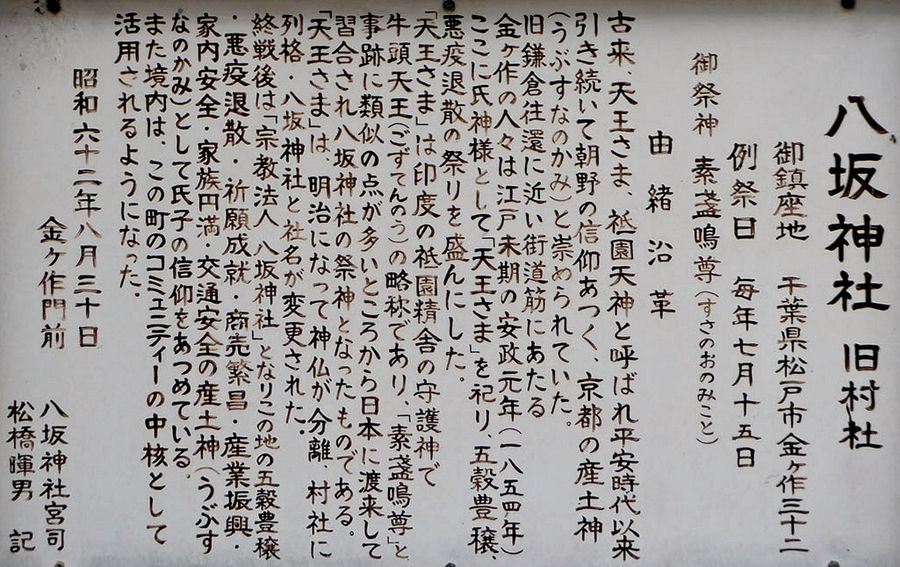 八坂神社 旧村社
御鎮座地 千葉県松戸市金ヶ作三十二
例祭日 毎年七月十五日
御祭神 素盞鳴尊(すさのおのみこと)
由緒沿革
古来、天王さま、祇園天神と呼ばれ平安時代以来
引き続いて朝野の信仰あつく、京都の産土神
(うぶすなのかみ)と崇められていた。
旧鎌倉往還に近い街道筋にあたる
金ヶ作の人々は江戸末期の安政元年(一八五四年)
ここに氏神様として「天王さま」を祀り、五穀豊穣、
悪疫退散の祭りを盛んにした。
「天王さま」は印度の祇園精舎の守護神で
牛頭天王(ごずてんのう)の略称であり、「素盞鳴尊」と
事跡に類似の点が多いところから日本に渡来して
習合され八坂神社の祭神となったものである。
「天王さま」は、明治になって神仏が分離、村社に
列格・八坂神社と社名が変更された。
終戦後は「宗教法人 八坂神社」となりこの地の五穀豊穣
・悪疫退散・祈願成就・商売繁昌・産業振興・
家内安全・家族円満・交通安全の産土神(うぶす
なのかみ)として氏子の信仰をあつめている。
また境内は、この町のコミュニティーの中核として
活用されるようになった。
昭和六十二年八月三十日
金ヶ作門前
八坂神社宮司
松橋暉男 記